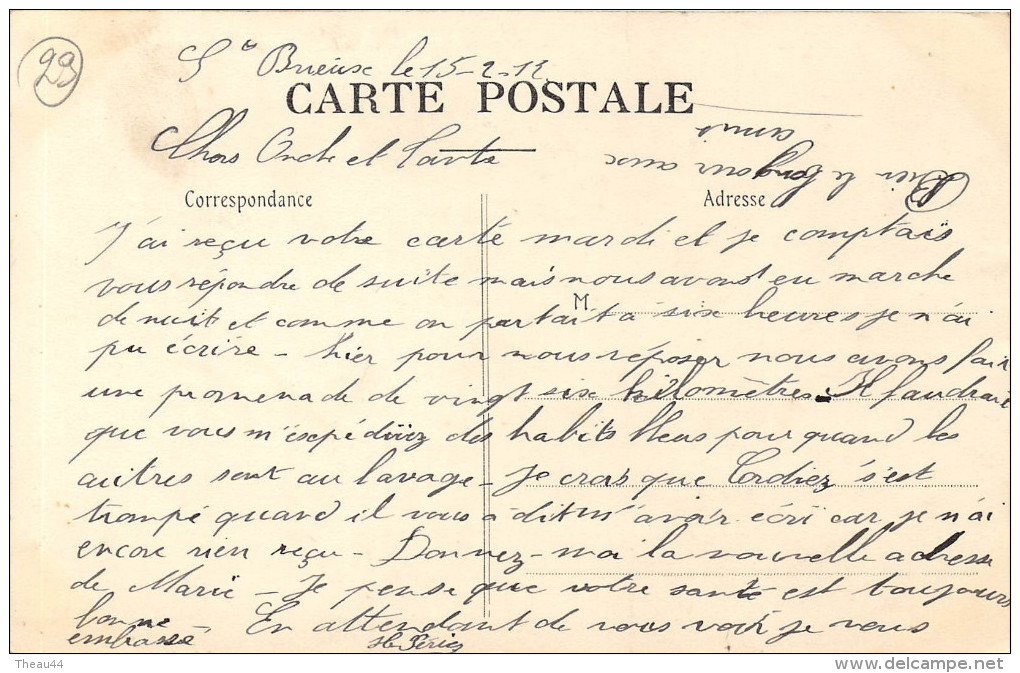 29
St Brieux le 15-2-12
CARTE POSTALE
Chers Oncle et Tante
Bien le bonjour aux
amis
Correspondance
Adresse
J'ai reçu votre carte mardi et je comptais
vous répondre de suite mais nous avons eu marche
M
de nuit et comme on partait à six heures je n'ai
pu écrire - hier pour nous réposer nous avons fait
une promenade de vingt six kilomètres - Il faudrait
que vous m'éxpédiiez des habits bleus pour quand les
autres sont au lavage - je crois que Cordiez s'est
trompé quand il vous a dit m'avoir écri car je n'ai
encore rien reçu - Donnez-moi la nouvelle adresse
de Marie - Je pense que votre santé est toujours
bonne - En attendant de vous voir je vous
embrasse
Theau44
delcampe.net